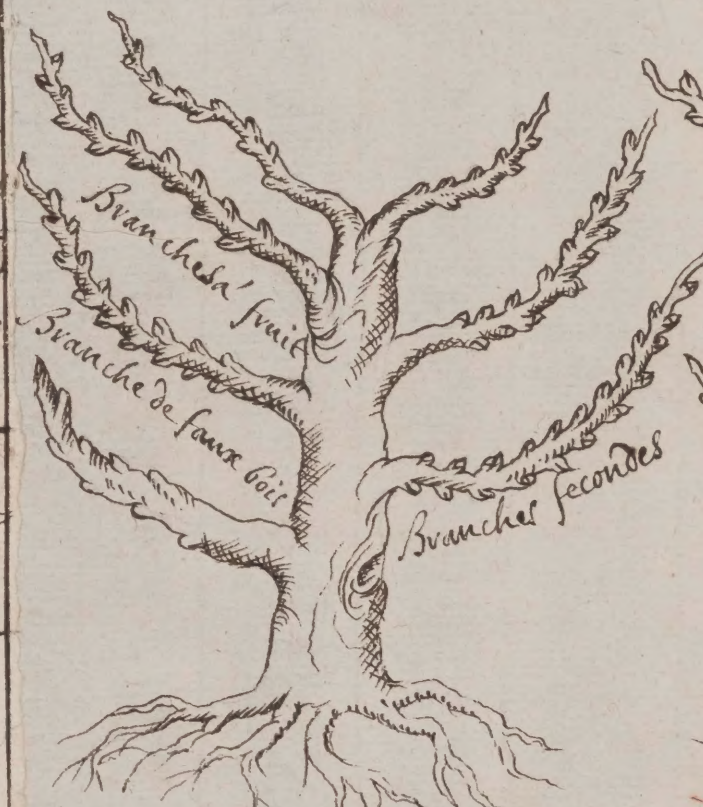 Branches à fruit
Branche de faux bois
Branches secondes